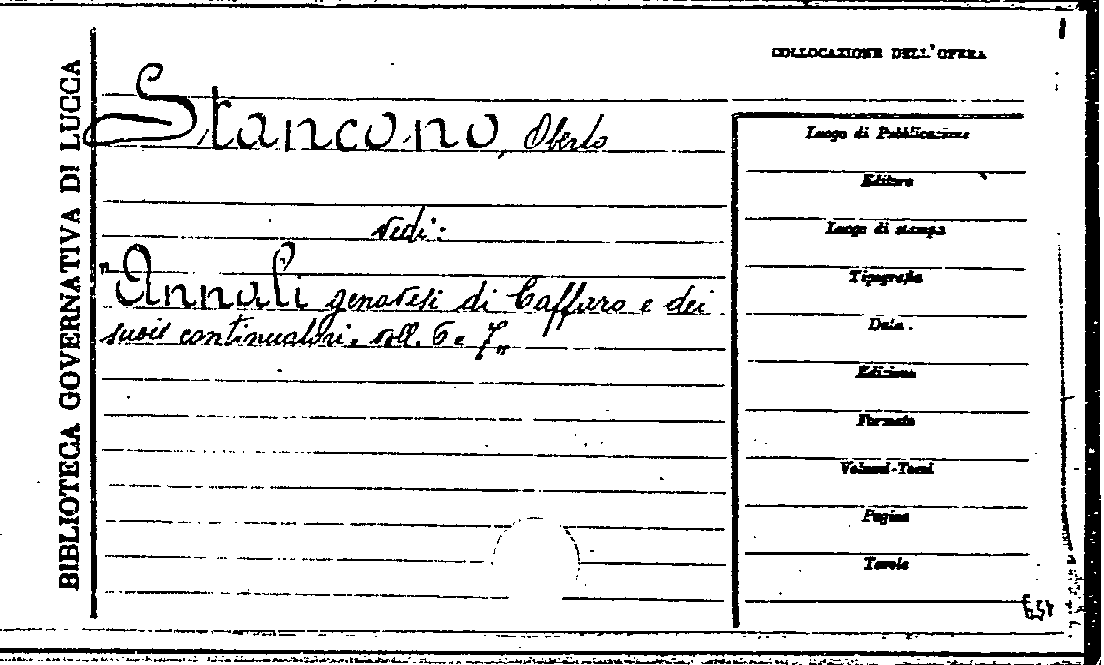 BIBLIOTECA GOVERNATIVA DI LUCCA
COLLOCAZIONE DELL'OPERA
Stancono, Oberto
vedi:
"Annali genovesi di Caffaro e dei
suoi continuatori. voll. 6 e 7"
Luogo di Pubblicazione
Editore
Luogo di stampa
Tipografia
Data.
Edizione
Formato
Volumi-Tomi
Pagine
Tavole